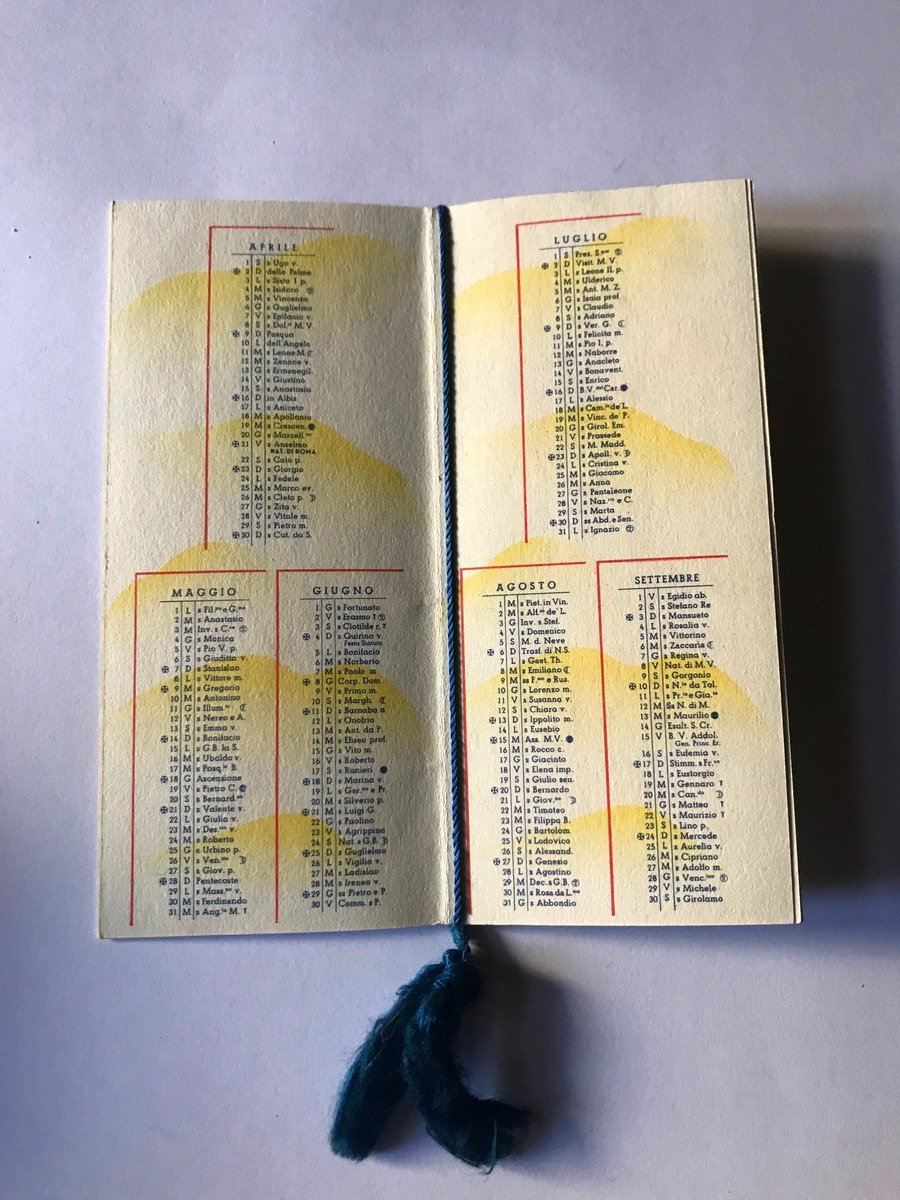 APRILE
1 S s Ugo v.
✠ 2 D delle Palme
3 L s Sisto I p.
4 M s Isidoro
5 M s Vincenzo
6 G s Guglielmo
7 V s Epifanio v.
8 S s Dol.ª M. V.
✠ 9 D Pasqua
10 L dell'Angelo
11 M s Leone M. ☾
12 M s Zenone v.
13 G s Ermenegil.
14 V s Giustino
15 S s Anastasia
✠ 16 D in Albis
17 L s Aniceto
18 M s Apollonio
19 M s Crescen. ●
20 G s Marcell.ⁿᵒ
✠ 21 V s Anselmo
NAT. DI ROMA
22 S s Caio p.
✠ 23 D s Giorgio
24 L s Fedele
25 M s Marco ev.
26 M s Cleto p. ☽
27 G s Zita v.
28 V s Vitale m.
29 S s Pietro m.
✠ 30 D s Cat. da S.
MAGGIO
1 L s Fil.ᵖᵒ e G.ᵐᵒ
2 M s Anastasio
3 M Inv. s C.ᶜᵉ
4 G s Monica
5 V s Pio V. p.
6 S s Giuditta v.
✠ 7 D s Stanislao
8 L s Vittore m.
✠ 9 M s Gregorio
10 M s Antonino
11 G s Illum.ᵗᵃ ☾
12 V s Nereo e A.
13 S s Emma v.
✠ 14 D s Bonifacio
15 L s G.B. la S.
16 M s Ubaldo v.
17 M s Pasq.ˡᵉ B.
✠ 18 G Ascensione
19 V s Pietro C. ●
20 S s Bernard.ⁿᵒ
✠ 21 D s Valente v.
22 L s Giulia v.
23 M s Des.ʳⁱᵒ v.
24 M s Roberto
25 G s Urbino p.
26 V s Ven.ⁿᵒ ☽
27 S s Giov. p.
✠ 28 D Pentecoste
29 L s Mass.ⁿᵒ v.
30 M s Ferdinando
31 M s Ang.ˡᵃ M. †
GIUGNO
1 G s Fortunato
2 V s Erasmo †
3 S s Clotilde r. †
✠ 4 D s Quirino v.
Festa Statuto
5 L s Bonifacio
6 M s Norberto
7 M s Paolo m.
✠ 8 G Corp. Dom.
9 V s Primo m.
10 S s Margh. ☾
✠ 11 D s Barnaba a.
12 L s Onofrio
13 M s Ant. da P.
14 M s Eliseo prof.
15 G s Vito m.
16 V s Roberto
17 S s Ranieri ●
✠ 18 D s Marina v.
19 L s Ger.ˢᵒ e Pr.
20 M s Silverio p.
✠ 21 M s Luigi G.
22 G s Paolino
23 V s Agrippina
24 S Nat. s G.B. ☽
✠ 25 D s Guglielmo
26 L s Vigilio v.
27 M s Ladislao
28 M s Ireneo v.
✠ 29 G ss Pietro e P.
30 V Comm. s P.
LUGLIO
1 S Prez. S.ᵘᵉ
✠ 2 D Visit. M. V.
3 L s Leone II. p.
4 M s Ulderico
5 M s Ant. M. Z.
6 G s Isaia prof.
7 V s Claudio
8 S s Adriano
✠ 9 D s Ver. G. ☾
10 L s Felicita m.
11 M s Pio I, p.
12 M s Naborre
13 G s Anacleto
14 V s Bonavent.
15 S s Enrico
✠ 16 D B.V. ᵈᵉˡ Car. ●
17 L s Alessio
18 M s Cam.ˡᵒ de' L.
19 M s Vinc. de' P.
20 G s Girol. Em.
21 V s Prassede
22 S s M. Madd.
✠ 23 D s Apoll. v. ☽
24 L s Cristina v.
25 M s Giacomo
26 M s Anna
27 G s Pantaleone
28 V s Naz.ʳⁱᵒ e C.
29 S s Marta
✠ 30 D ss Abd. e Sen.
31 L s Ignazio
AGOSTO
1 M s Piet. in Vin.
2 M s Alf.ˢᵒ de' L.
3 G Inv. s Stef.
4 V s Domenico
5 S M. d. Neve
✠ 6 D Trasf. di N.S.
7 L s Gaet. Th.
8 M s Emiliano ☾
9 M ss F.ᵐᵒ e Rus.
10 G s Lorenzo m.
11 V s Susanna v.
12 S s Chiara v.
✠ 13 D s Ippolito m.
14 L s Eusebio
✠ 15 M Ass. M.V. ●
16 M s Rocco c.
17 G s Giacinto
18 V s Elena imp.
19 S s Giulio sen.
✠ 20 D s Bernardo
21 L s Giov.ⁿᵃ ☽
22 M s Timoteo
23 M s Filippo B.
24 G s Bartolom.
25 V s Lodovico
26 S s Alessand.
✠ 27 D s Genesio
28 L s Agostino
29 M Dec. s G.B.
30 M s Rosa da L.ᵐᵃ
31 G s Abbondio
SETTEMBRE
1 V s Egidio ab.
2 S s Stefano Re
✠ 3 D s Mansueto
4 L s Rosalia v.
5 M s Vittorino
6 M s Zaccaria ☾
7 G s Regina v.
8 V Nat. di M. V.
9 S s Gorgonio
✠ 10 D s N.ˡᵃ da Tol.
11 L s Pr.ᵗᵒ e Gia.ᵗᵒ
12 M Ss N. di M.
13 M s Maurilio ●
14 G Esalt. S. Cr.
15 V B. V. Addol.
Gen. Princ. Er.
16 S s Eufemia v.
✠ 17 D Stimm. s Fr.ᶜᵒ
18 L s Eustorgio
19 M s Gennaro †
20 M s Can.ᵈᵃ ☽
21 G s Matteo †
22 V s Maurizio †
23 S s Lino p.
✠ 24 D s Mercede
25 L s Aurelia v.
26 M s Cipriano
27 M s Adolfo m.
28 G s Venc.ˡᵃᵒ
29 V s Michele
30 S s Girolamo